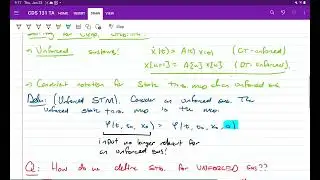 9:17 Thu Jan 23
CDS 131 TA
→ Unforced systems: ẋ(t) = A(t) x(t) (CT-unforced)
x[k+1] = A[k] x[k] (DT-unforced),
→ Convenient notation for state trans. map of an unforced sys.
Defn: (Unforced STM). Consider an unforced sys. The
unforced state trans. map is the map:
φ(t, t₀, x₀) = φ(t, t₀, x₀, 0)
input no longer relevant for
an unforced sys!
Q: How do we define STM for UNFORCED sys??